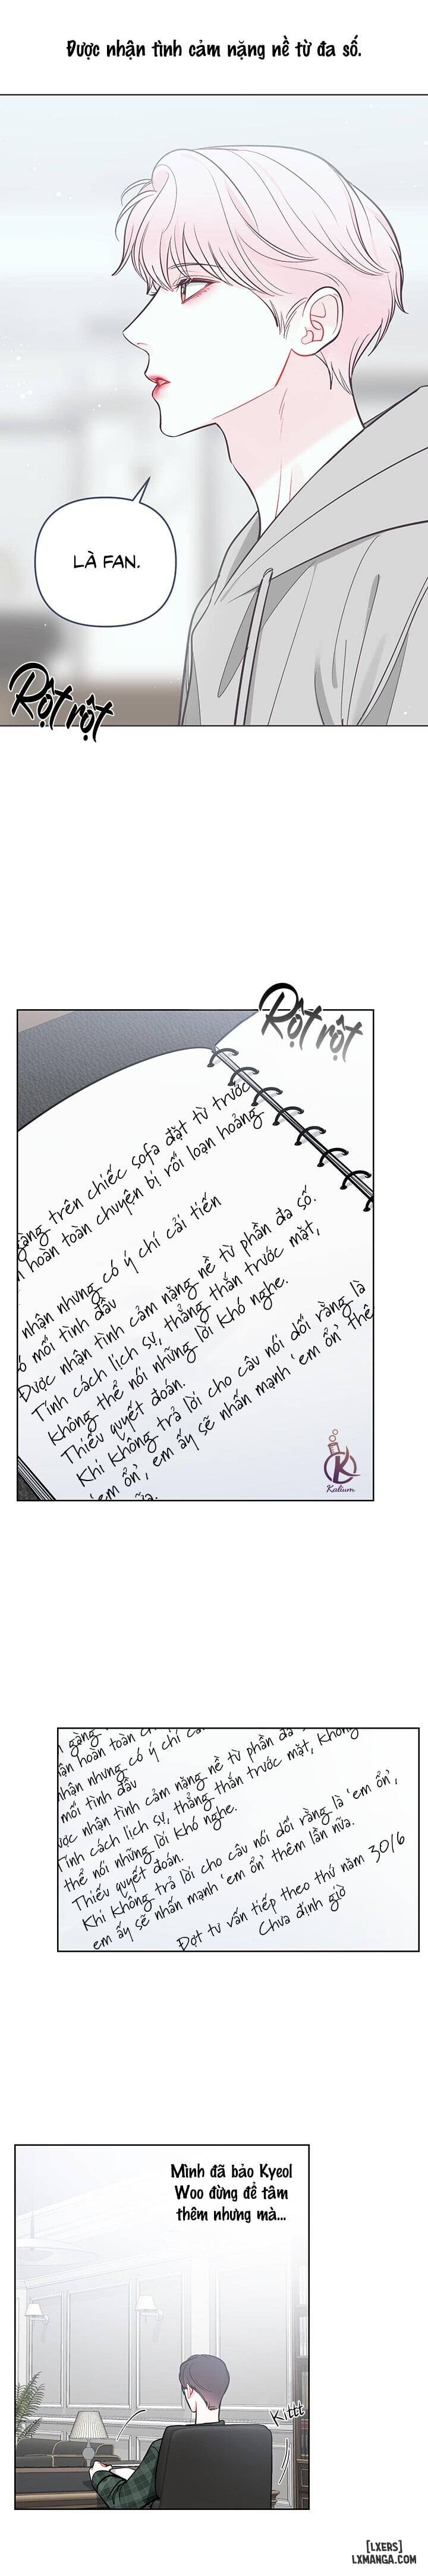 Được nhận tình cảm nặng nề từ đa số.
LÀ FAN.
Rột rột
Rột rột
gàng trên chiếc sofa đặt từ trước
hoàn toàn chuyện bị rối loạn hoảng
nhận nhưng có ý chí cải tiến
mối tình đầu
Được nhận tình cảm nặng nề từ phần đa số.
Tính cách lịch sự, thẳng thắn trước mặt,
không thể nói những lời khó nghe.
Thiếu quyết đoán.
Khi không trả lời cho câu nói dối rằng là
'em ổn', em ấy sẽ nhấn mạnh 'em ổn' thê
nữa.
Kalium
gàng
hoàn toàn ch
nhận nhưng có ý chí cả
mối tình đầu
ược nhận tình cảm nặng nề từ phần đa s
Tính cách lịch sự, thẳng thắn trước mặt, không
thể nói những lời khó nghe.
Thiếu quyết đoán.
Khi không trả lời cho câu nói dối rằng là 'em ổn',
em ấy sẽ nhấn mạnh 'em ổn' thêm lần nữa.
Đợt tư vấn tiếp theo thứ năm 30/6
Chưa định giờ
Mình đã bảo Kyeol
Woo đừng để tâm
thêm nhưng mà...
Kittt
[LXERS]
LXMANGA.COM